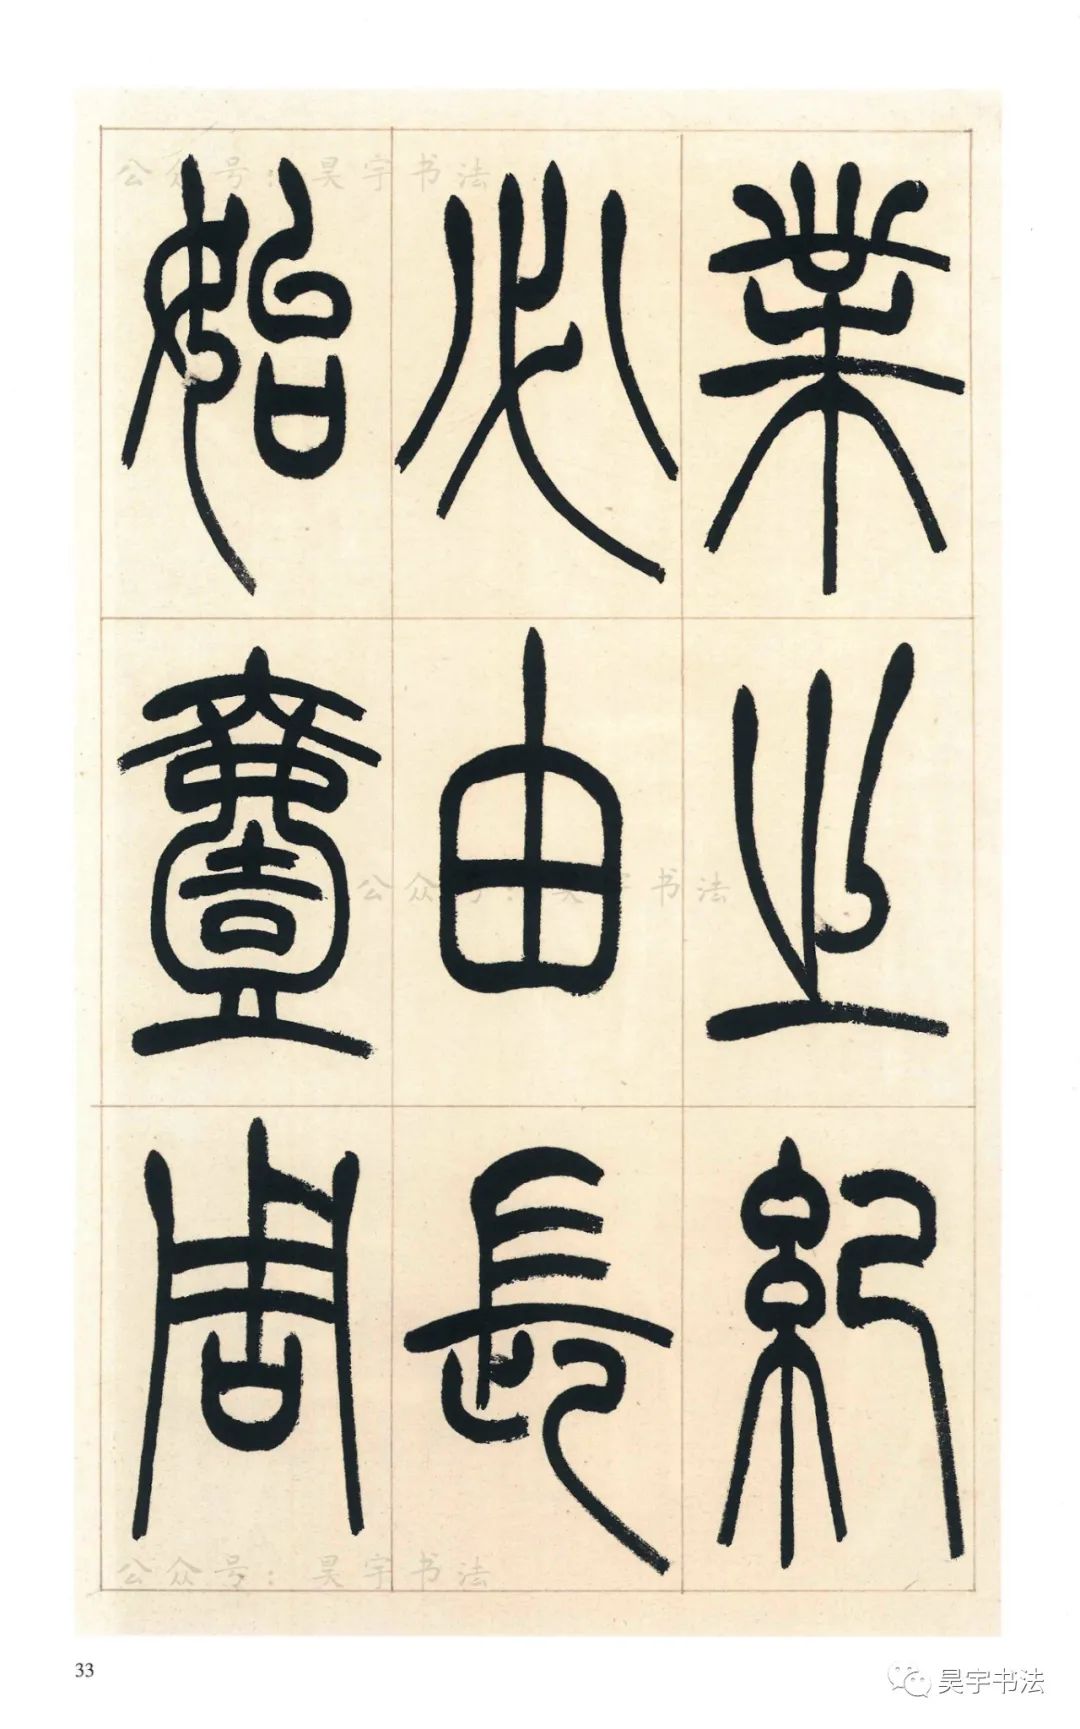 業之紀
必由長
始壹周
公众号：昊宇书法
公众号：昊宇书法
公众号：昊宇书法
33
昊宇书法